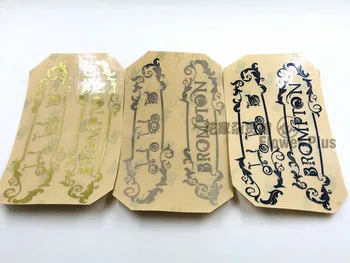 BROMPTON
BROMPTON
BROMPTON